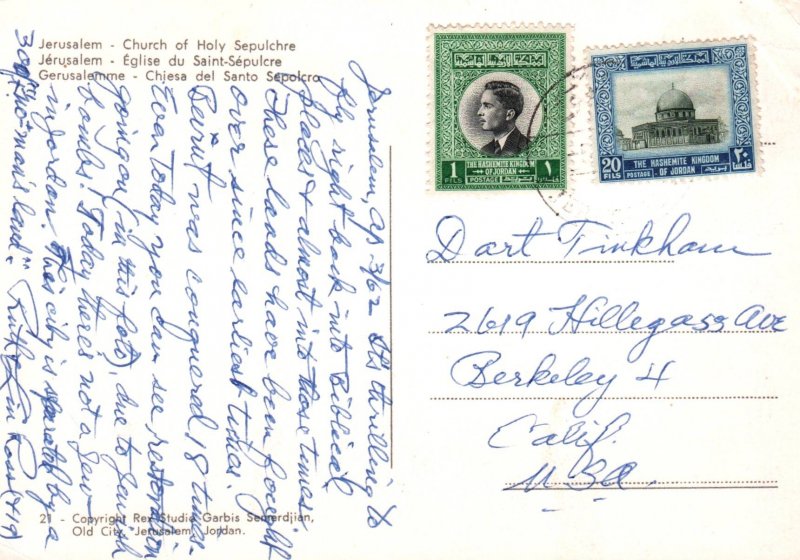 Jerusalem - Church of Holy Sepulchre
Jérusalem - Église du Saint-Sépulcre
Gerusalemme - Chiesa del Santo Sepolcro
Jerusalem, Ap 3/62 It's thrilling to
fly right back into Biblical
places & almost into those times.
These lands have been fought
over since earliest times.
Beirut was conquered 18 times.
Even today you can see restoration
going on (in this foto), due to Jewish
bombs. Today there's not a Jew
in Jordan. This city is separated by a
300 ft "no man's land." Ruth & Lin Ross
21 - Copyright Rex Studio Garbis Semerdjian,
Old City, Jerusalem, Jordan.
1 FILS
THE HASHEMITE KINGDOM
OF JORDAN
POSTAGE
١
المملكة الاردنية الهاشمية
20 FILS
THE HASHEMITE KINGDOM
OF JORDAN
POSTAGE
٢٠
المملكة الاردنية الهاشمية
Dart Tinkham
2619 Hillegass Ave
Berkeley 4
Calif.
USA